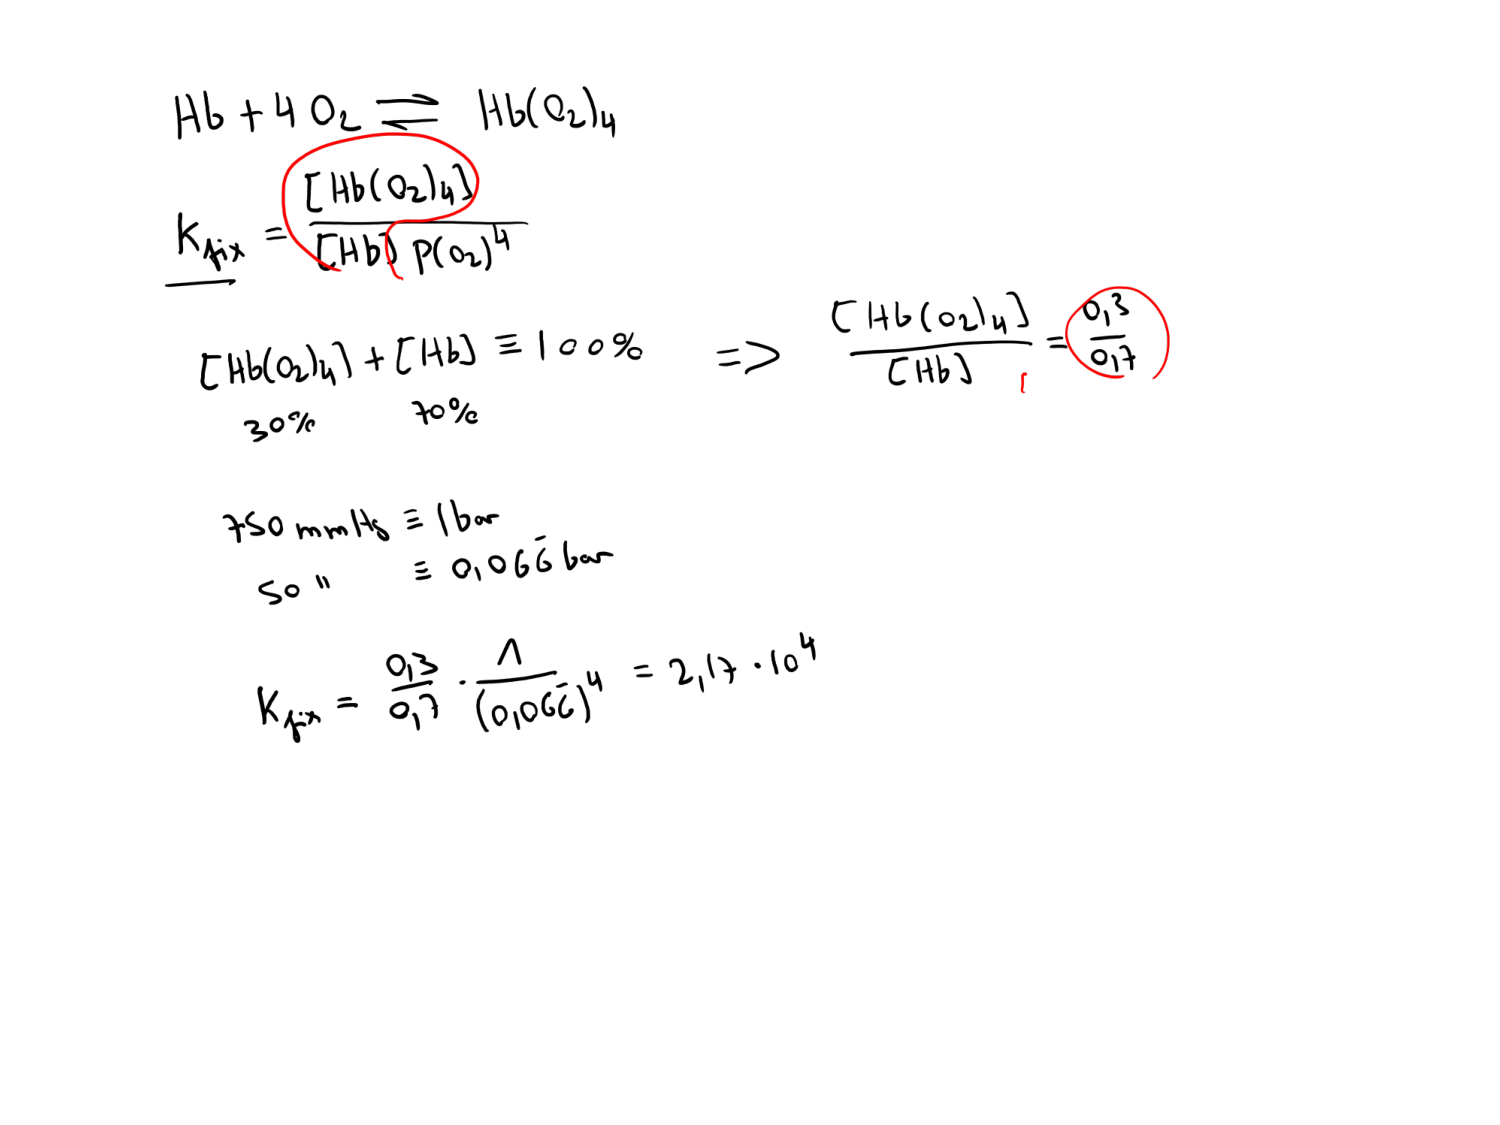 Hb + 4 O₂ ⇌ Hb(O₂)₄
K_fix = [Hb(O₂)₄] / [Hb] P(O₂)⁴
[Hb(O₂)₄] + [Hb] ≡ 100% => [Hb(O₂)₄] / [Hb] = 0,3 / 0,7
30% 70%
750 mmHg ≡ 1 bar
50 " ≡ 0,066̄ bar
K_fix = 0,3 / 0,7 · 1 / (0,066̄)⁴ = 2,17 · 10⁴